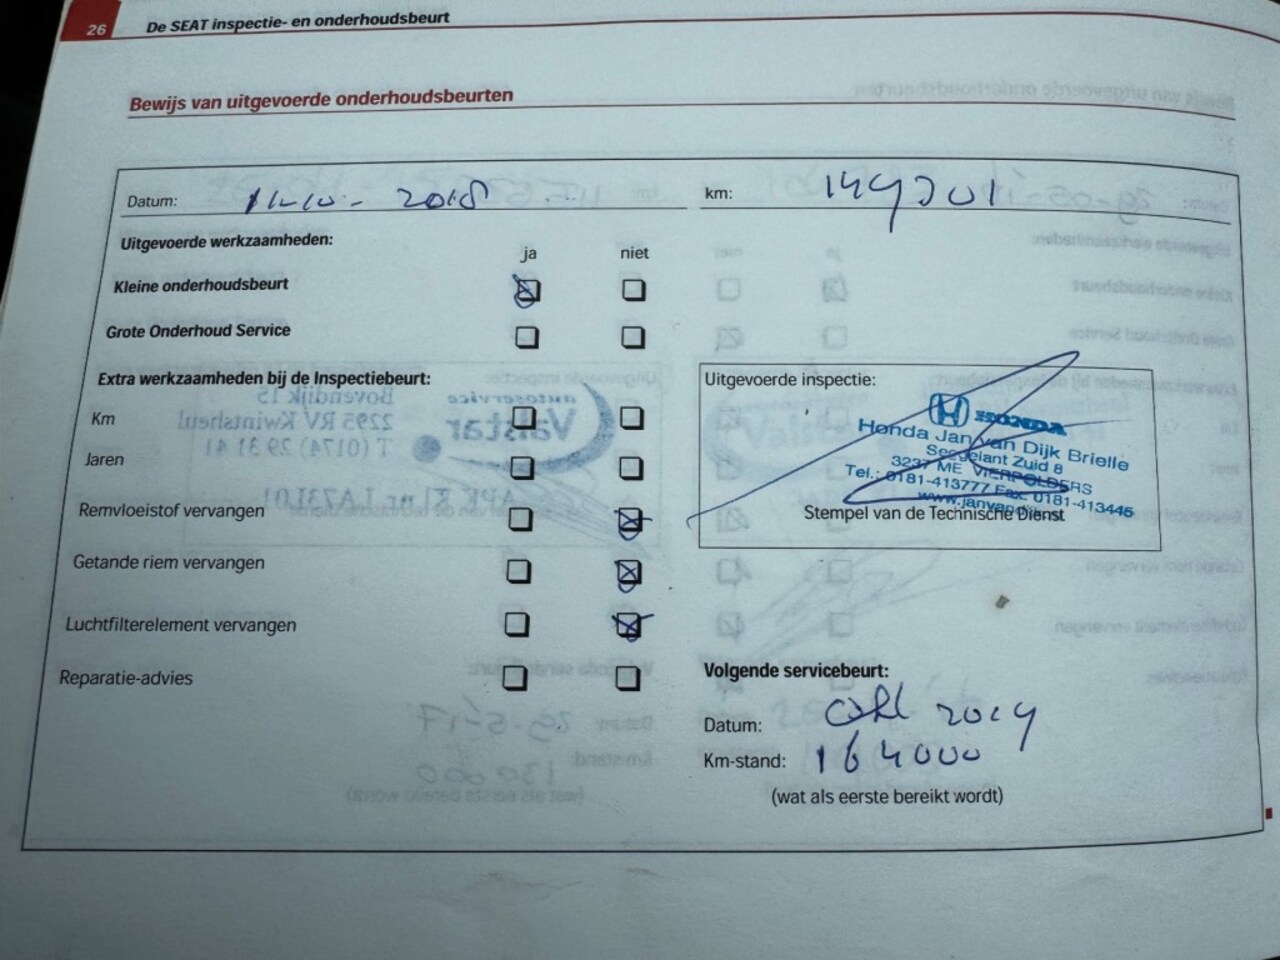 26 De SEAT inspectie- en onderhoudsbeurt
Bewijs van uitgevoerde onderhoudsbeurten
Datum: 2018 km:
Uitgevoerde werkzaamheden:
ja niet
Kleine onderhoudsbeurt
Grote Onderhoud Service
Extra werkzaamheden bij de Inspectiebeurt:
Km
Jaren
Remvloeistof vervangen
Getande riem vervangen
Luchtfilterelement vervangen
Reparatie-advies
Uitgevoerde inspectie:
HONDA
Honda Jan van Dijk Brielle
Seggelant Zuid 8
3237 ME VIERPOLDERS
Tel.: 0181-413777 Fax. 0181-413445
Stempel van de Technische Dienst
Volgende servicebeurt:
Datum: 2019
Km-stand: 164000
(wat als eerste bereikt wordt)